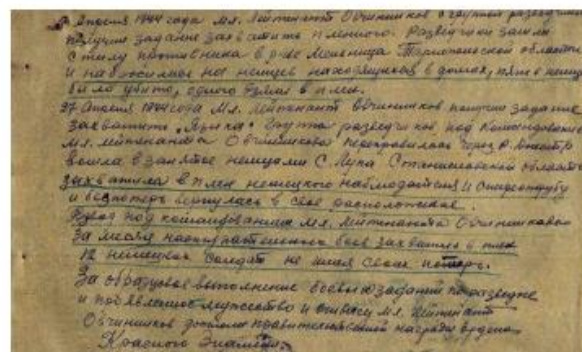 апреля 1944 года мл. лейтенант Овчинников с группой разведчиков
получил задание захватить пленного. Разведчики зашли
с тылу противника в р-не Тарнопольской области
и на немцев находящихся в домах, пять немцев
было убито, одного взяли в плен.
27 апреля 1944 года мл. лейтенант Овчинников получил задание
захватить "языка". Группа разведчиков под командованием
мл. лейтенанта Овчинникова переправилась через р. Днестр
вошла в занятое немцами с. Лука Станиславской области
захватила в плен немецкого наблюдателя и стереотрубу
и без потерь вернулась в свое расположение.
Взвод под командованием мл. лейтенанта Овчинникова
за месяц наступательного боев захватил в плен
12 немецких солдат не имея своих потерь.
За образцовое выполнение боевых заданий по разведке
и проявленное мужество и отвагу мл. лейтенант
Овчинников достоин правительственной награды ордена
Красного Знамени.